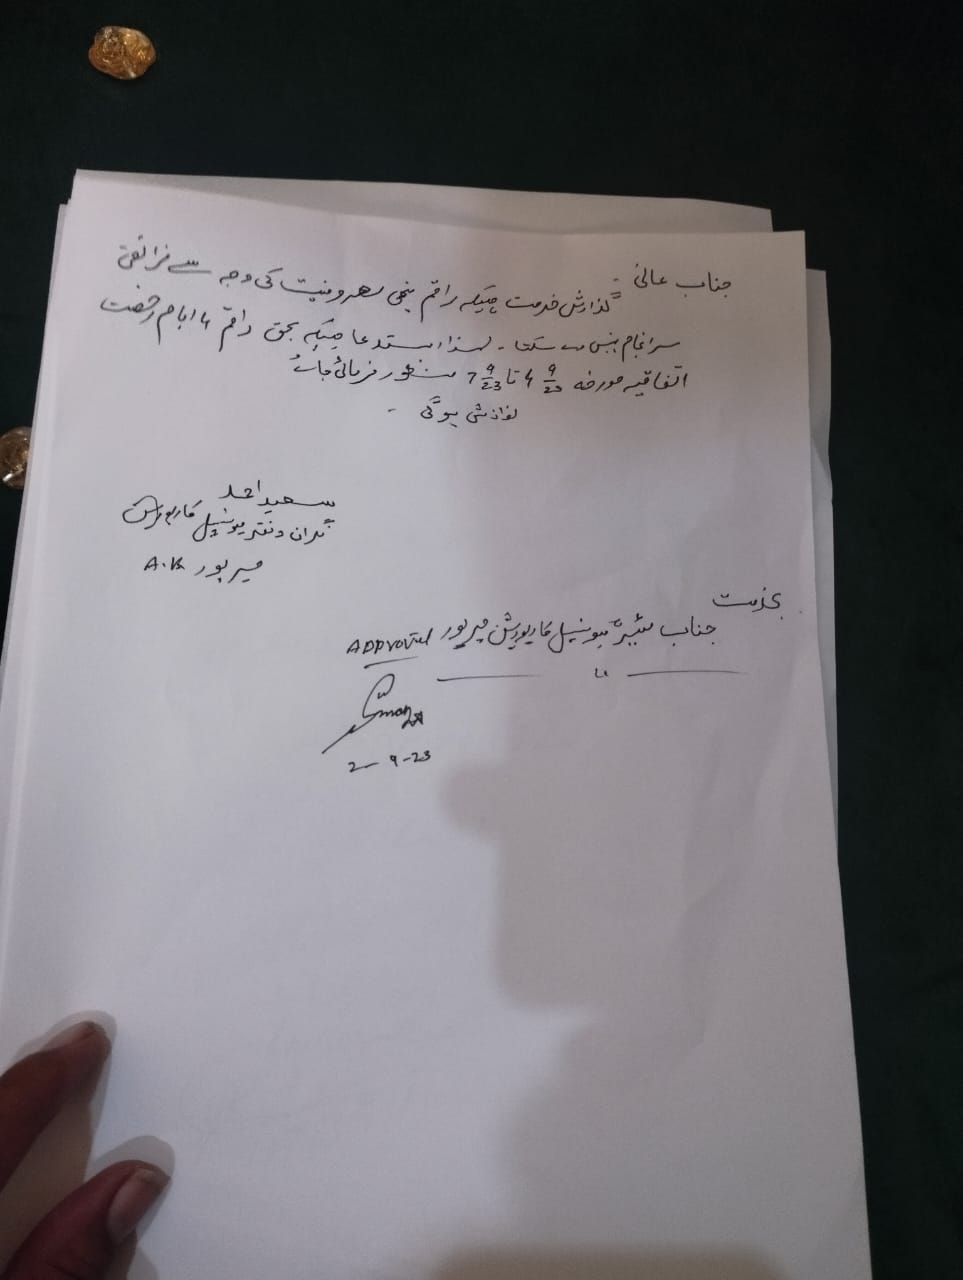 جناب عالی
گذارش خدمت ہیکہ راقم نجی مصروفیت کی وجہ سے فرائض
سرانجام نہیں دے سکتا۔ لہذا استدعا ہیکہ بحق راقم 4 ایام رخصت
اتفاقیہ مورخہ 4 9/23 تا 7 9/23 منظور فرمائی جائے
نوازش ہوگی ۔
سعید احمد
نگران دفتر میونسپل کارپوریشن
میرپور A.K
بخدمت
جناب میئر میونسپل کارپوریشن میرپور Approved
2-9-23